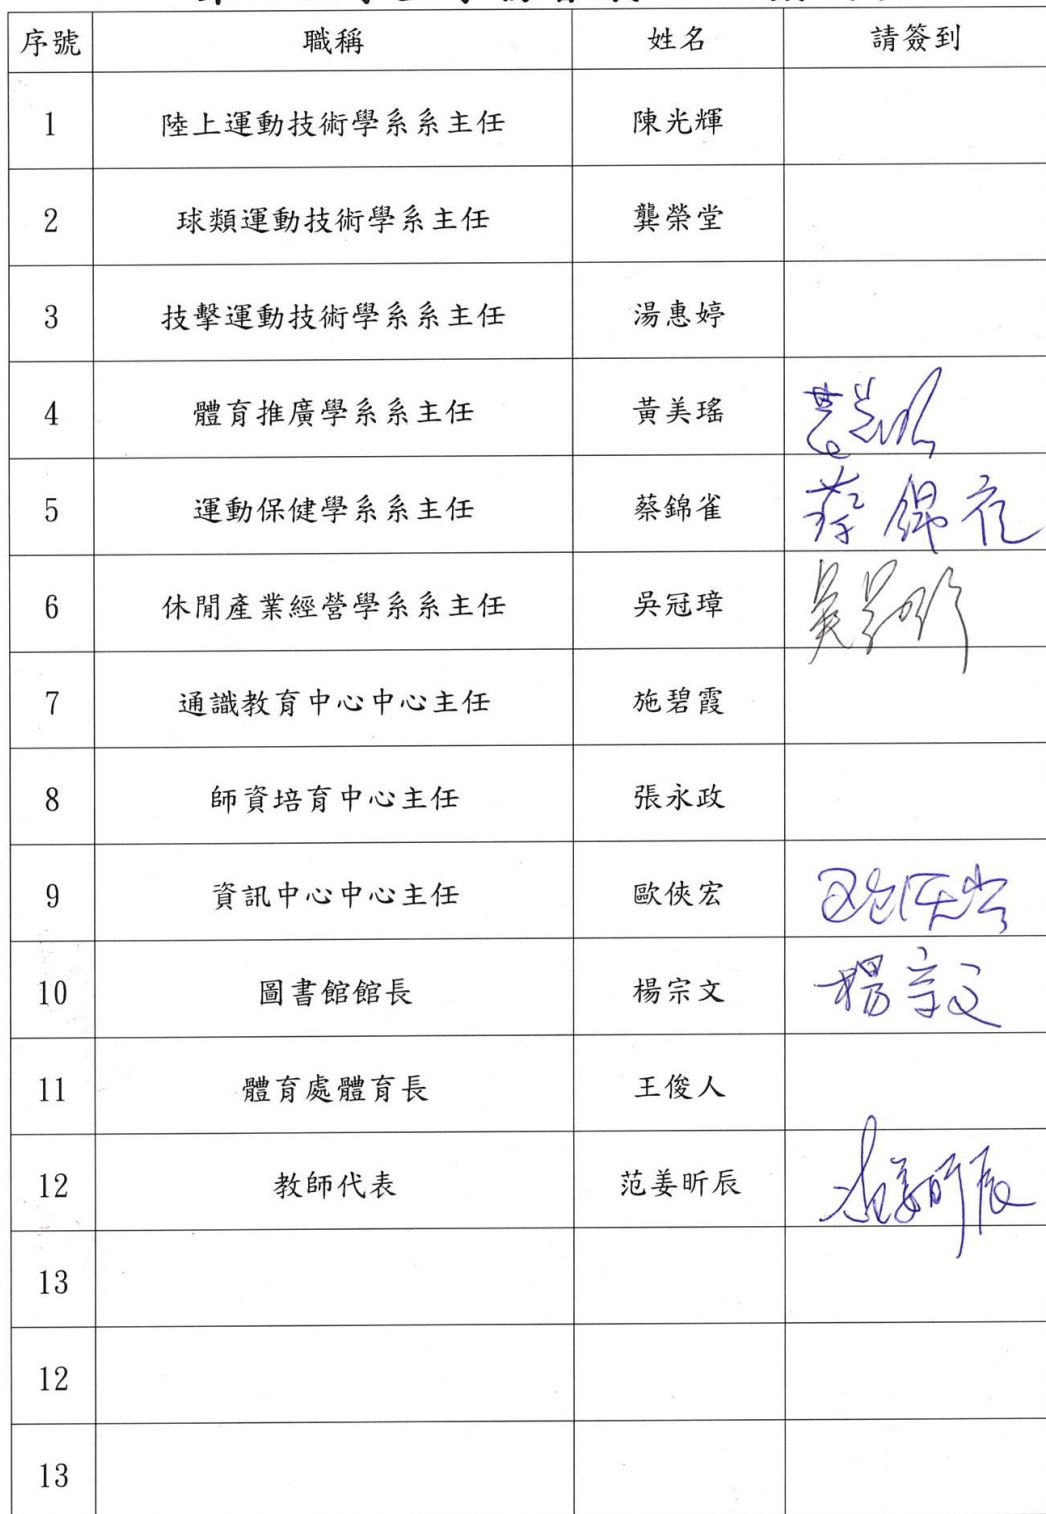 序號 職稱 姓名 請簽到
1 陸上運動技術學系系主任 陳光輝
2 球類運動技術學系主任 龔榮堂
3 技擊運動技術學系系主任 湯惠婷
4 體育推廣學系系主任 黃美瑤
5 運動保健學系系主任 蔡錦雀 蔡錦雀
6 休閒產業經營學系系主任 吳冠璋
7 通識教育中心中心主任 施碧霞
8 師資培育中心主任 張永政
9 資訊中心中心主任 歐俠宏
10 圖書館館長 楊宗文 楊宗文
11 體育處體育長 王俊人
12 教師代表 范姜昕辰 范姜昕辰
13
12
13